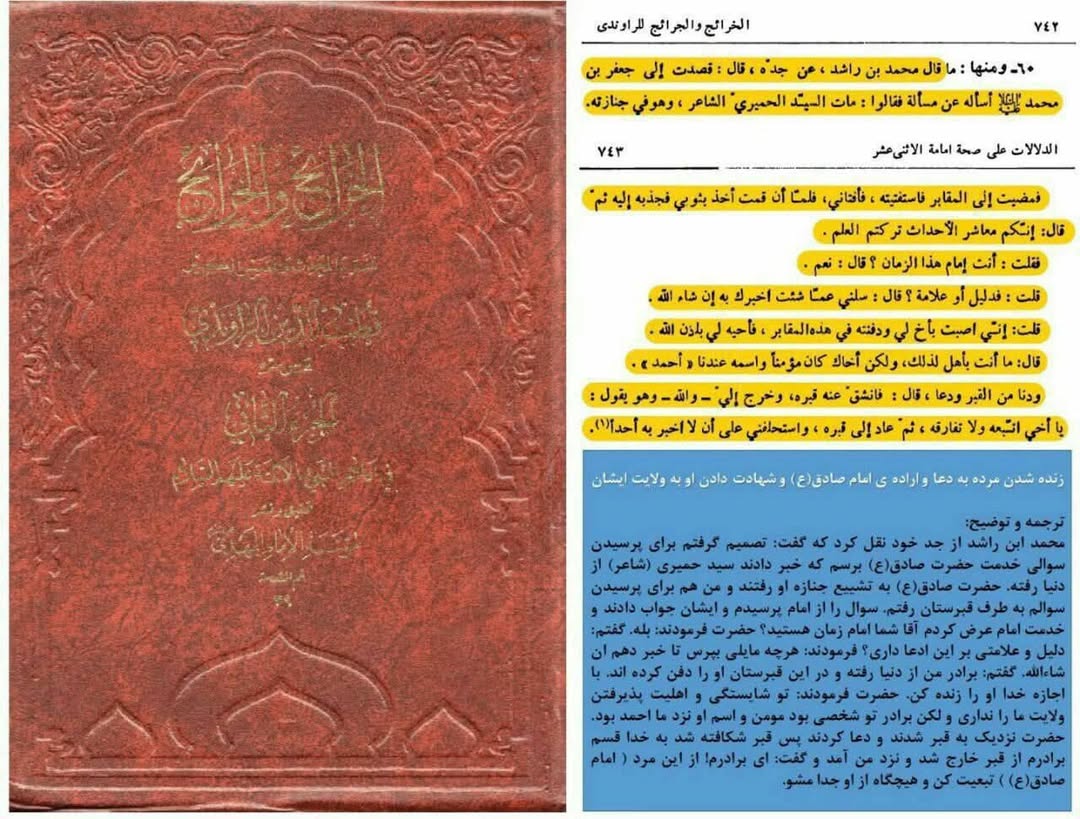 الخرائج والجرائح
قطب الدين الراوندي
الجزء الثاني
٧٤٢ الخرائج والجرائح للراوندى
٦٠ـ ومنها : ما قال محمد بن راشد ، عن جدّه ، قال : قصدت إلى جعفر بن
محمد أسأله عن مسألة فقالوا : مات السيّد الحميريّ الشاعر ، وهو في جنازته.
الدلالات على صحة امامة الاثنى عشر ٧٤٣
فمضيت إلى المقابر فاستفتيته ، فأفتاني، فلمـّا أن قمت أخذ بثوبي فجذبه إليه ثمّ
قال: إنـّكم معاشر الأحداث تركتم العلم .
فقلت : أنت إمام هذا الزمان ؟ قال : نعم .
قلت : فدليل أو علامة ؟ قال : سلني عمـّا شئت اخبرك به إن شاء الله .
قلت: إنـّي اصبت بأخ لي ودفنته في هذه المقابر ، فأحيه لي بإذن الله .
قال: ما أنت بأهل لذلك، ولكن أخاك كان مؤمناً واسمه عندنا « أحمد » .
ودنا من القبر ودعا ، قال : فانشقّ عنه قبره، وخرج إليّ ـ والله ـ وهو يقول :
يا أخي اتـّبعه ولا تفارقه ، ثمّ عاد إلى قبره ، واستحلفني على أن لا اخبر به أحداً(١).
زنده شدن مرده به دعا و اراده ی امام صادق(ع) و شهادت دادن او به ولایت ایشان
ترجمه و توضیح:
محمد ابن راشد از جد خود نقل کرد که گفت: تصمیم گرفتم برای پرسیدن
سوالی خدمت حضرت صادق(ع) برسم که خبر دادند سید حمیری (شاعر) از
دنیا رفته. حضرت صادق(ع) به تشییع جنازه او رفتند و من هم برای پرسیدن
سوالم به طرف قبرستان رفتم. سوال را از امام پرسیدم و ایشان جواب دادند و
خدمت امام عرض کردم آقا شما امام زمان هستید؟ حضرت فرمودند: بله. گفتم:
دلیل و علامتی بر این ادعا داری؟ فرمودند: هرچه مایلی بپرس تا خبر دهم ان
شاءالله. گفتم: برادر من از دنیا رفته و در این قبرستان او را دفن کرده اند. با
اجازه خدا او را زنده کن. حضرت فرمودند: تو شایستگی و اهلیت پذیرفتن
ولایت ما را نداری و لکن برادر تو شخصی بود مومن و اسم او نزد ما احمد بود.
حضرت نزدیک به قبر شدند و دعا کردند پس قبر شکافته شد به خدا قسم
برادرم از قبر خارج شد و نزد من آمد و گفت: ای برادرم! از این مرد ( امام
صادق(ع) ) تبعیت کن و هیچگاه از او جدا مشو.